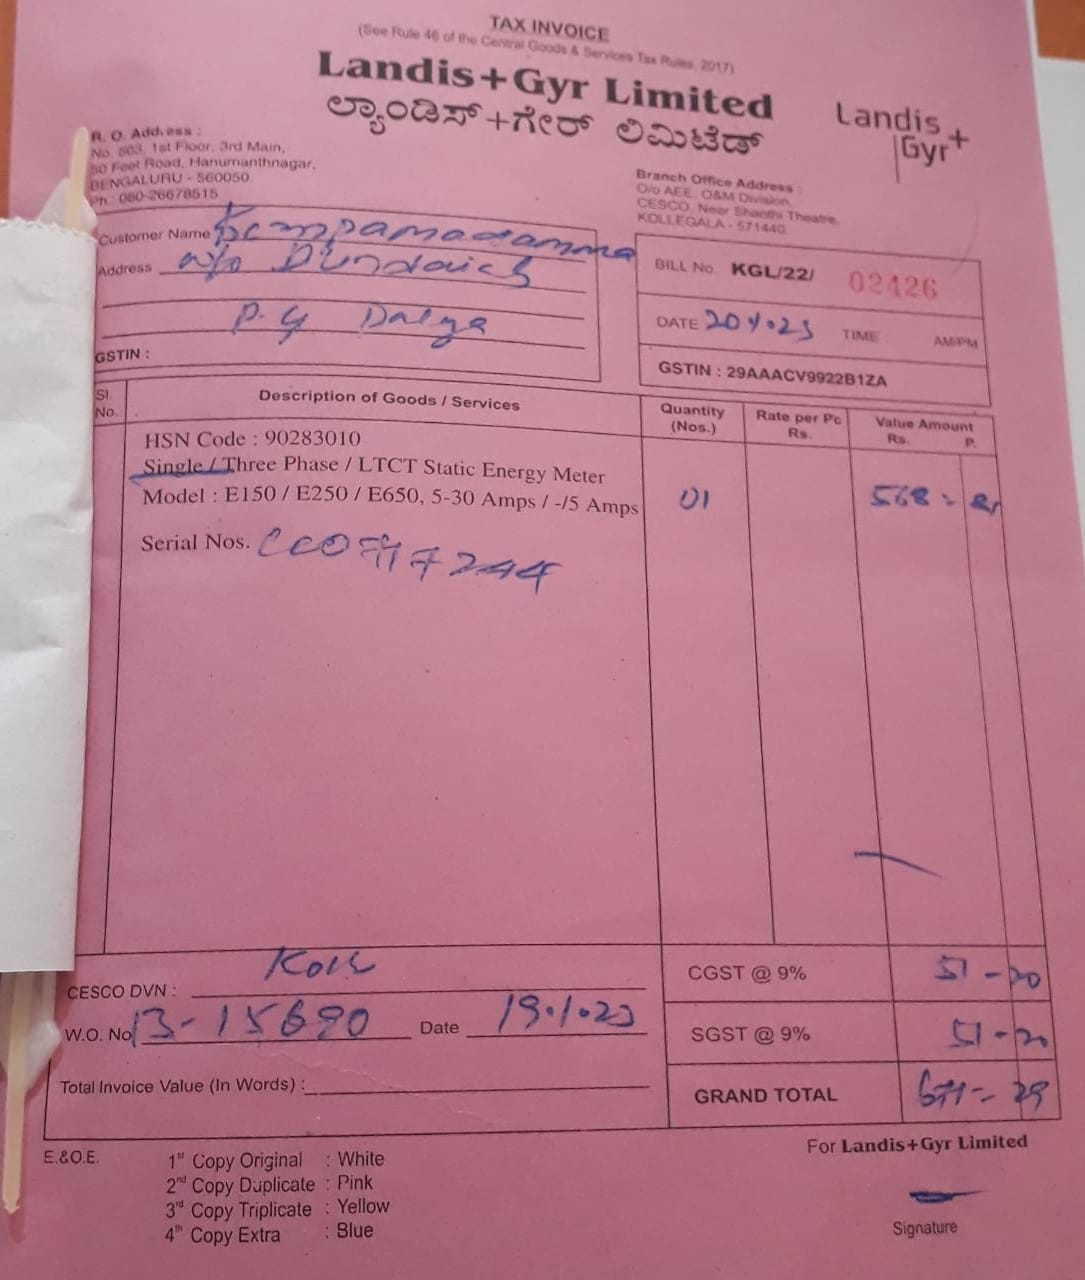 TAX INVOICE
(See Rule 46 of the Central Goods & Services Tax Rules, 2017)
Landis+Gyr Limited
ಲ್ಯಾಂಡಿಸ್+ಗೇರ್ ಲಿಮಿಟೆಡ್
Landis
Gyr+
R. O. Address :
No. 503, 1st Floor, 3rd Main,
50 Feet Road, Hanumanthnagar,
BENGALURU - 560050.
Ph.: 080-26678515
Branch Office Address :
O/o AEE, O&M Division,
CESCO, Near Shanthi Theatre,
KOLLEGALA - 571440.
Customer Name
Address w/o
P. G
GSTIN :
BILL No. KGL/22/ 02426
DATE 20.1.23 TIME AM/PM
GSTIN : 29AAACV9922B1ZA
Sl. No. Description of Goods / Services Quantity (Nos.) Rate per Pc Rs. Value Amount Rs. P.
HSN Code : 90283010
Single / Three Phase / LTCT Static Energy Meter
Model : E150 / E250 / E650, 5-30 Amps / -/5 Amps 01 568 =
Serial Nos.
CESCO DVN :
CGST @ 9% 51 - 20
W.O. No 13-15690 Date 19.1.23
SGST @ 9% 51 - 20
Total Invoice Value (In Words) :
GRAND TOTAL
E.&O.E.
For Landis+Gyr Limited
1st Copy Original : White
2nd Copy Duplicate : Pink
3rd Copy Triplicate : Yellow
4th Copy Extra : Blue
Signature